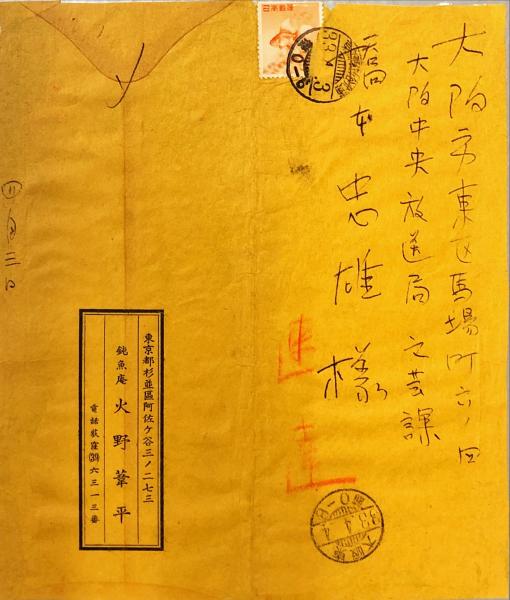 大阪市東区馬場町六ノ四
大阪中央放送局 文芸課
橋本忠雄様
速達
日本郵便
33.4.3
33.4.4
四月三日
東京都杉並區阿佐ケ谷三ノ二七三
鈍魚庵 火野葦平
電話荻窪(39)六三一三番